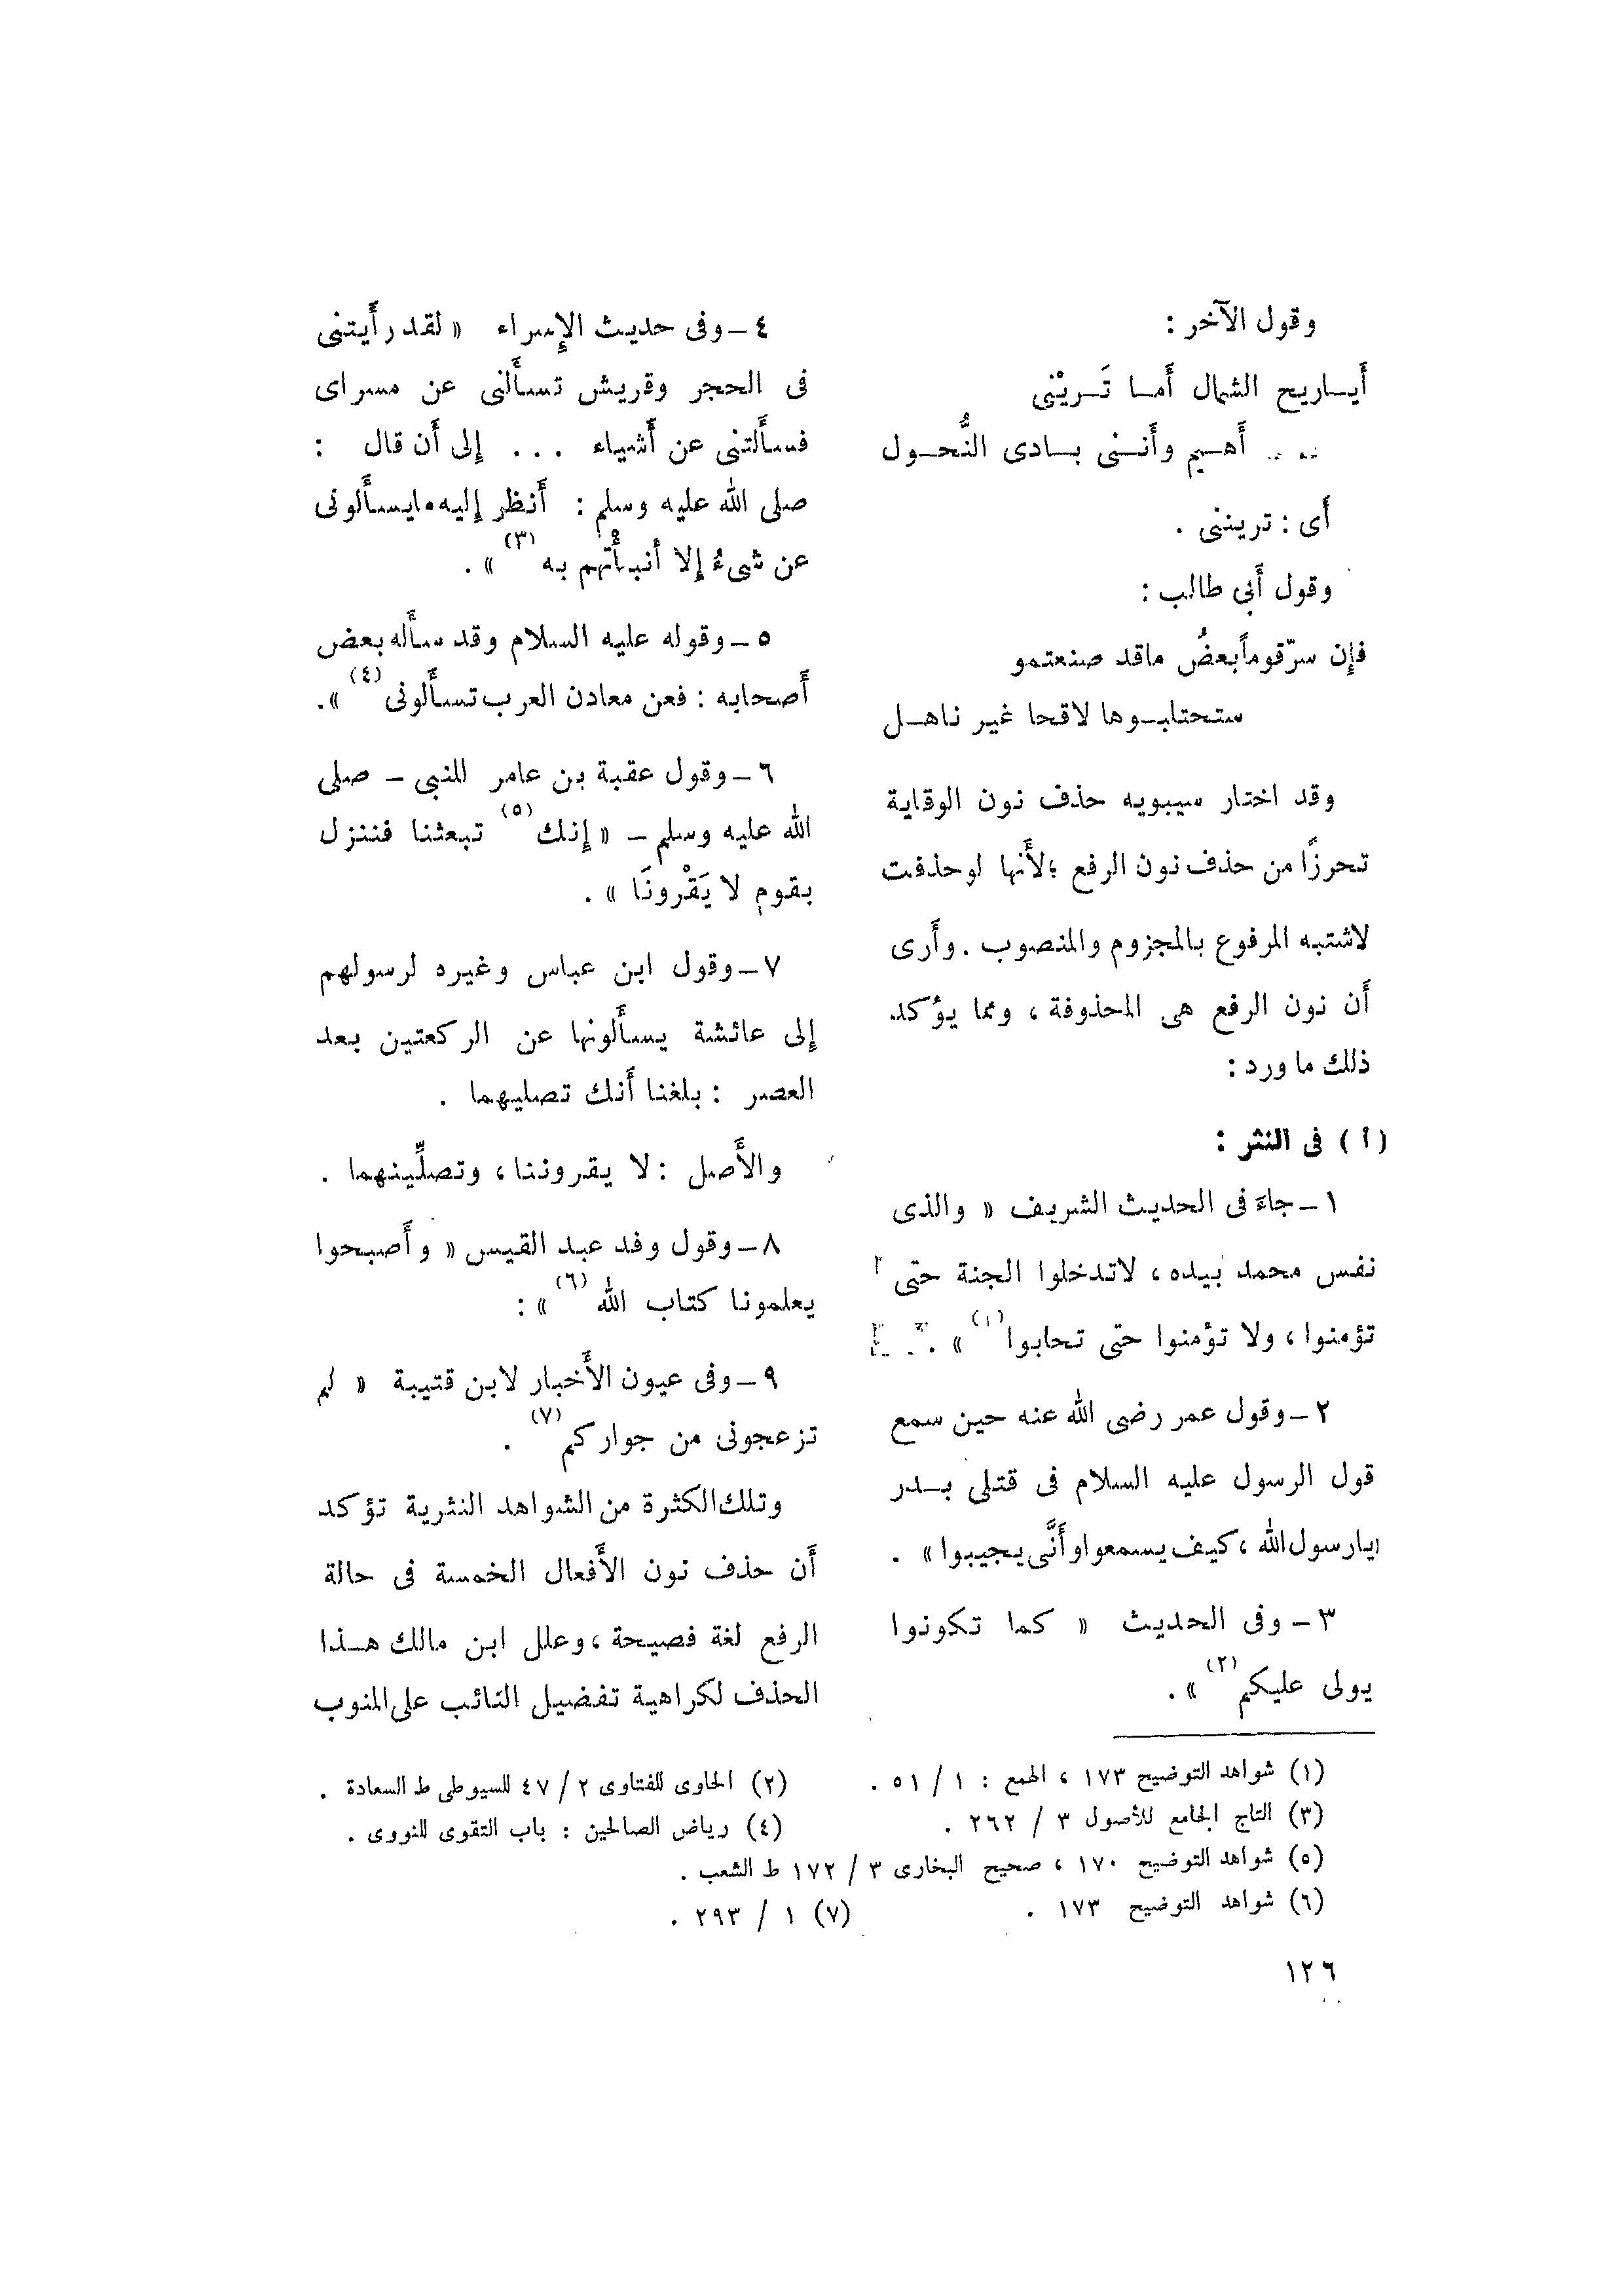 وقول الآخر :
أيـاريح الشمال أمـا تَـريْنى
أهـيم وأنـنى بـادى النُّحـول
أى : تريننى .
وقول أبى طالب :
فإن سرّقوماً بعضُ ماقد صنعتمو
ستحتلبـوها لاقحا غير ناهـل
وقد اختار سيبويه حذف نون الوقاية
تحرزًا من حذف نون الرفع ؛ لأنها لوحذفت
لاشتبه المرفوع بالمجزوم والمنصوب . وأرى
أن نون الرفع هى المحذوفة ، ومما يؤكد
ذلك ما ورد :
( أ ) فى النثر :
١ – جاءَ فى الحديث الشريف « والذى
نفس محمد بيده ، لاتدخلوا الجنة حتى
تؤمنوا ، ولا تؤمنوا حتى تحابوا (١) » .
٢ – وقول عمر رضى الله عنه حين سمع
قول الرسول عليه السلام فى قتلى بـدر
يارسول الله ، كيف يسمعوا وأَنَّى يجيبوا » .
٣ – وفى الحديث « كما تكونوا
يولى عليكم (٢) » .
٤ – وفى حديث الإسراء « لقد رأيتنى
فى الحجر وقريش تسألنى عن مسراى
فسألتنى عن أشياء . . . إلى أن قال :
صلى الله عليه وسلم : أنظر إليه مايسألونى
عن شىءُ إلا أنبأتهم به (٣) » .
٥ – وقوله عليه السلام وقد سأله بعض
أصحابه : فعن معادن العرب تسألونى (٤) » .
٦ – وقول عقبة بن عامر للنبى – صلى
الله عليه وسلم – « إنك (٥) تبعثنا فننزل
بقوم لا يَقْرونَا » .
٧ – وقول ابن عباس وغيره لرسولهم
إلى عائشة يسألونها عن الركعتين بعد
العصر : بلغنا أنك تصليهما .
والأصل : لا يقروننا ، وتصلِّينهما .
٨ – وقول وفد عبد القيس « وأصبحوا
يعلمونا كتاب الله (٦) » :
٩ – وفى عيون الأخبار لابن قتيبة « لم
تزعجونى من جواركم (٧) .
وتلك الكثرة من الشواهد النثرية تؤكد
أن حذف نون الأفعال الخمسة فى حالة
الرفع لغة فصيحة ، وعلل ابن مالك هـذا
الحذف لكراهية تفضيل النائب على المنوب
(١) شواهد التوضيح ١٧٣ ، الهمع : ١ / ٥١ .
(٢) الحاوى للفتاوى ٢ / ٤٧ للسيوطى ط السعادة .
(٣) التاج الجامع للأصول ٣ / ٢٦٢ .
(٤) رياض الصالحين : باب التقوى للنووى .
(٥) شواهد التوضيح ١٧٠ ، صحيح البخارى ٣ / ١٧٢ ط الشعب .
(٦) شواهد التوضيح ١٧٣ .
(٧) ١ / ٢٩٣ .
١٢٦